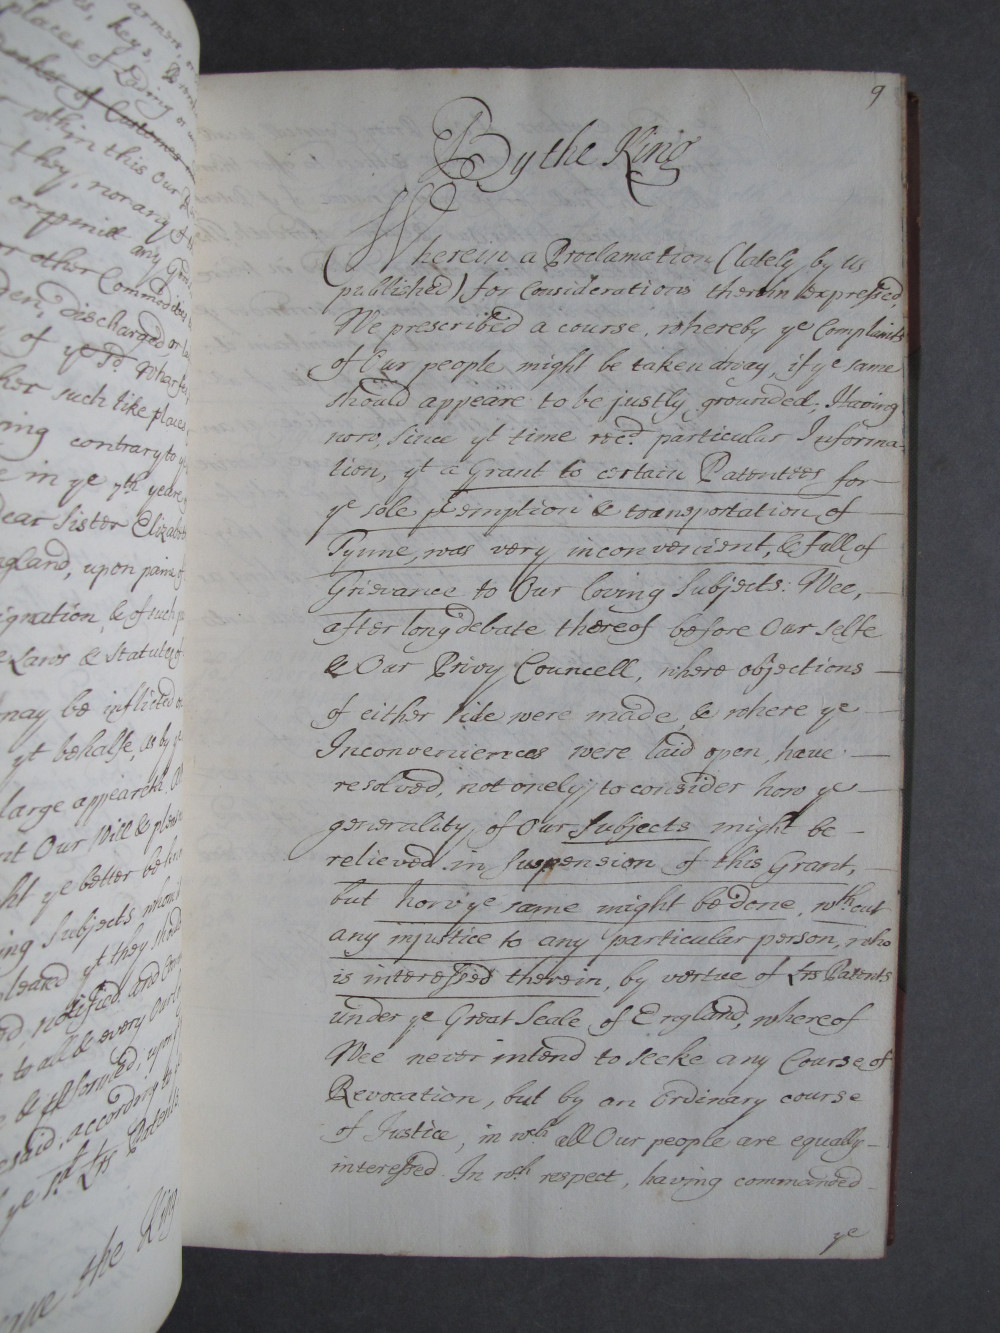 armor,
keys, &
places of Lading or
of Customes
within this Our
they, nor any of
or permitt any
or other Commodities
discharged, or
of ye sd. Wharfes
her such like places
ing contrary to ye
in ye 7th yeare
Dear Sister Elizabeth
England, upon paine of
ignation, & of such
Laws & Statutes of
may be inflicted
yt behalfe, as by ye
large appeareth. And
Our Will & pleasure
ye better
ing Subjects whom
yt they should
notified, and
to all & every Our
& pformed, upon
said, according to
ye sd. Lrs Patents
the King
9
By the King
Wherein a Proclamation (lately by us
published) for Considerations therein expressed,
We prescribed a course, whereby ye Complaints
of Our people might be taken away, if ye same
should appeare to be justly grounded; Having
now, since yt time recd. particular Informa-
tion, yt a Grant to certain Patentees for
ye sole pemption & transportation of
Tynne, was very inconvenient, & full of
Grievance to Our loving Subjects: Wee,
after long debate thereof before Our selfe
& Our Privy Councell, where objections
of either side were made, & where ye
Inconveniences were laid open, have
resolved, not onely, to consider how ye
generality, of Our Subjects might be
relieved in suspension of this Grant,
but how ye same might be done, wth.out
any injustice to any particular person, who
is interessed therein, by vertue of Lrs Patents
under ye Great Seale of England, whereof
Wee never intend to seeke any Course of
Revocation, but by an Ordinary course
of Justice, in wch. all Our people are equally
interessed. In wch. respect, having commanded
ye